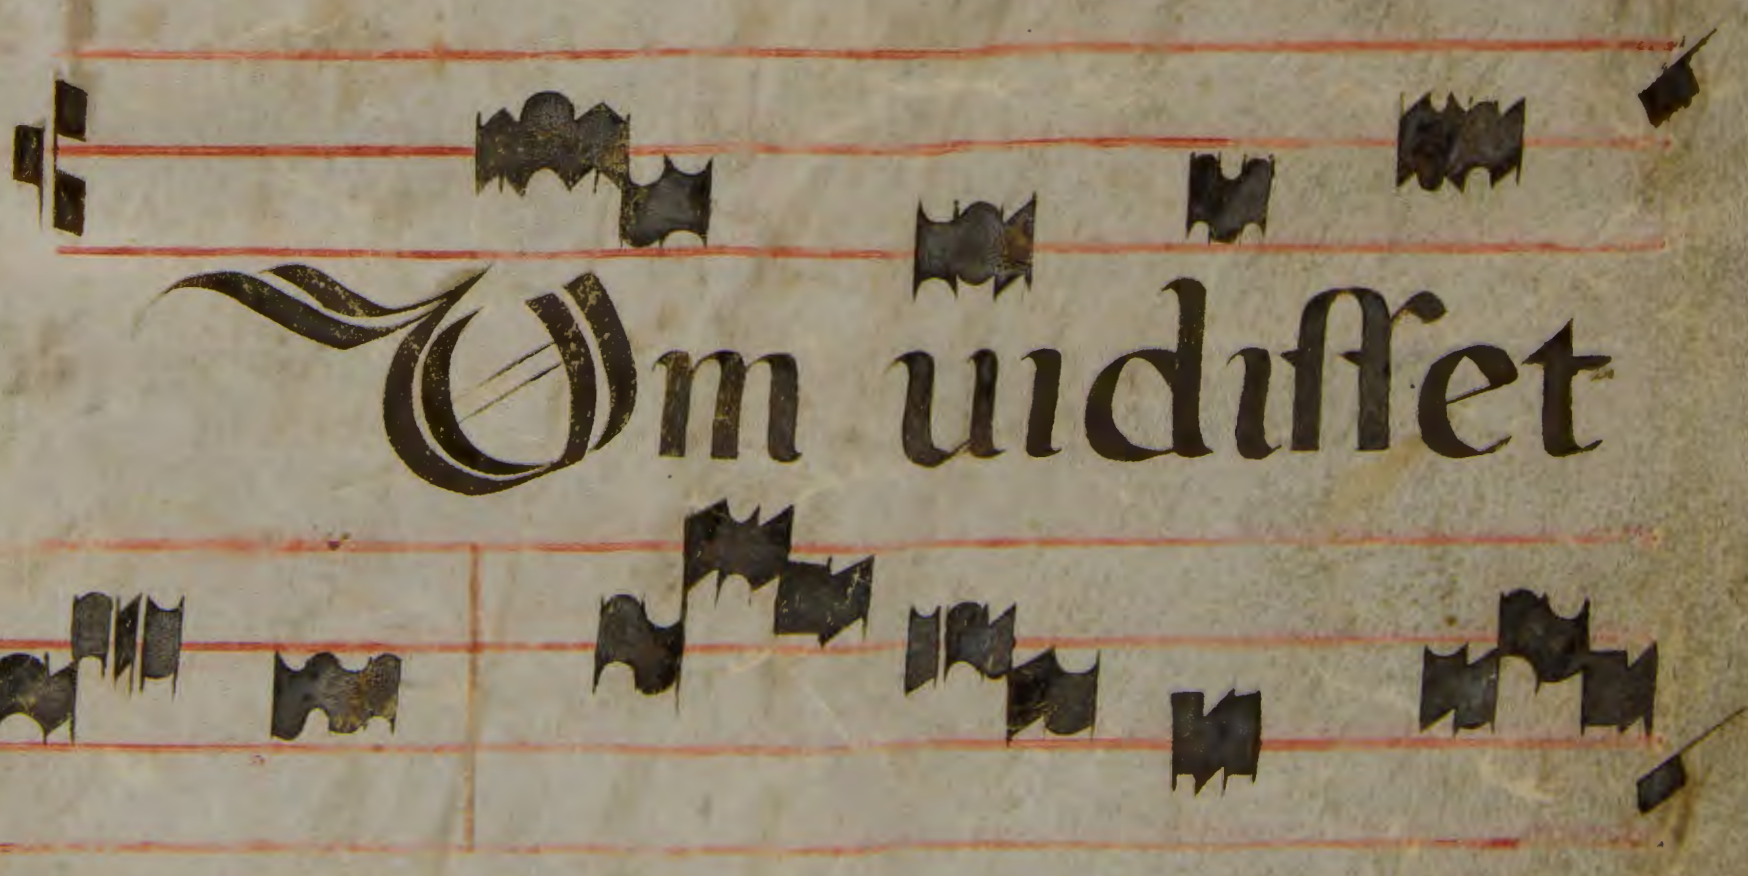 Vm uidiſſet